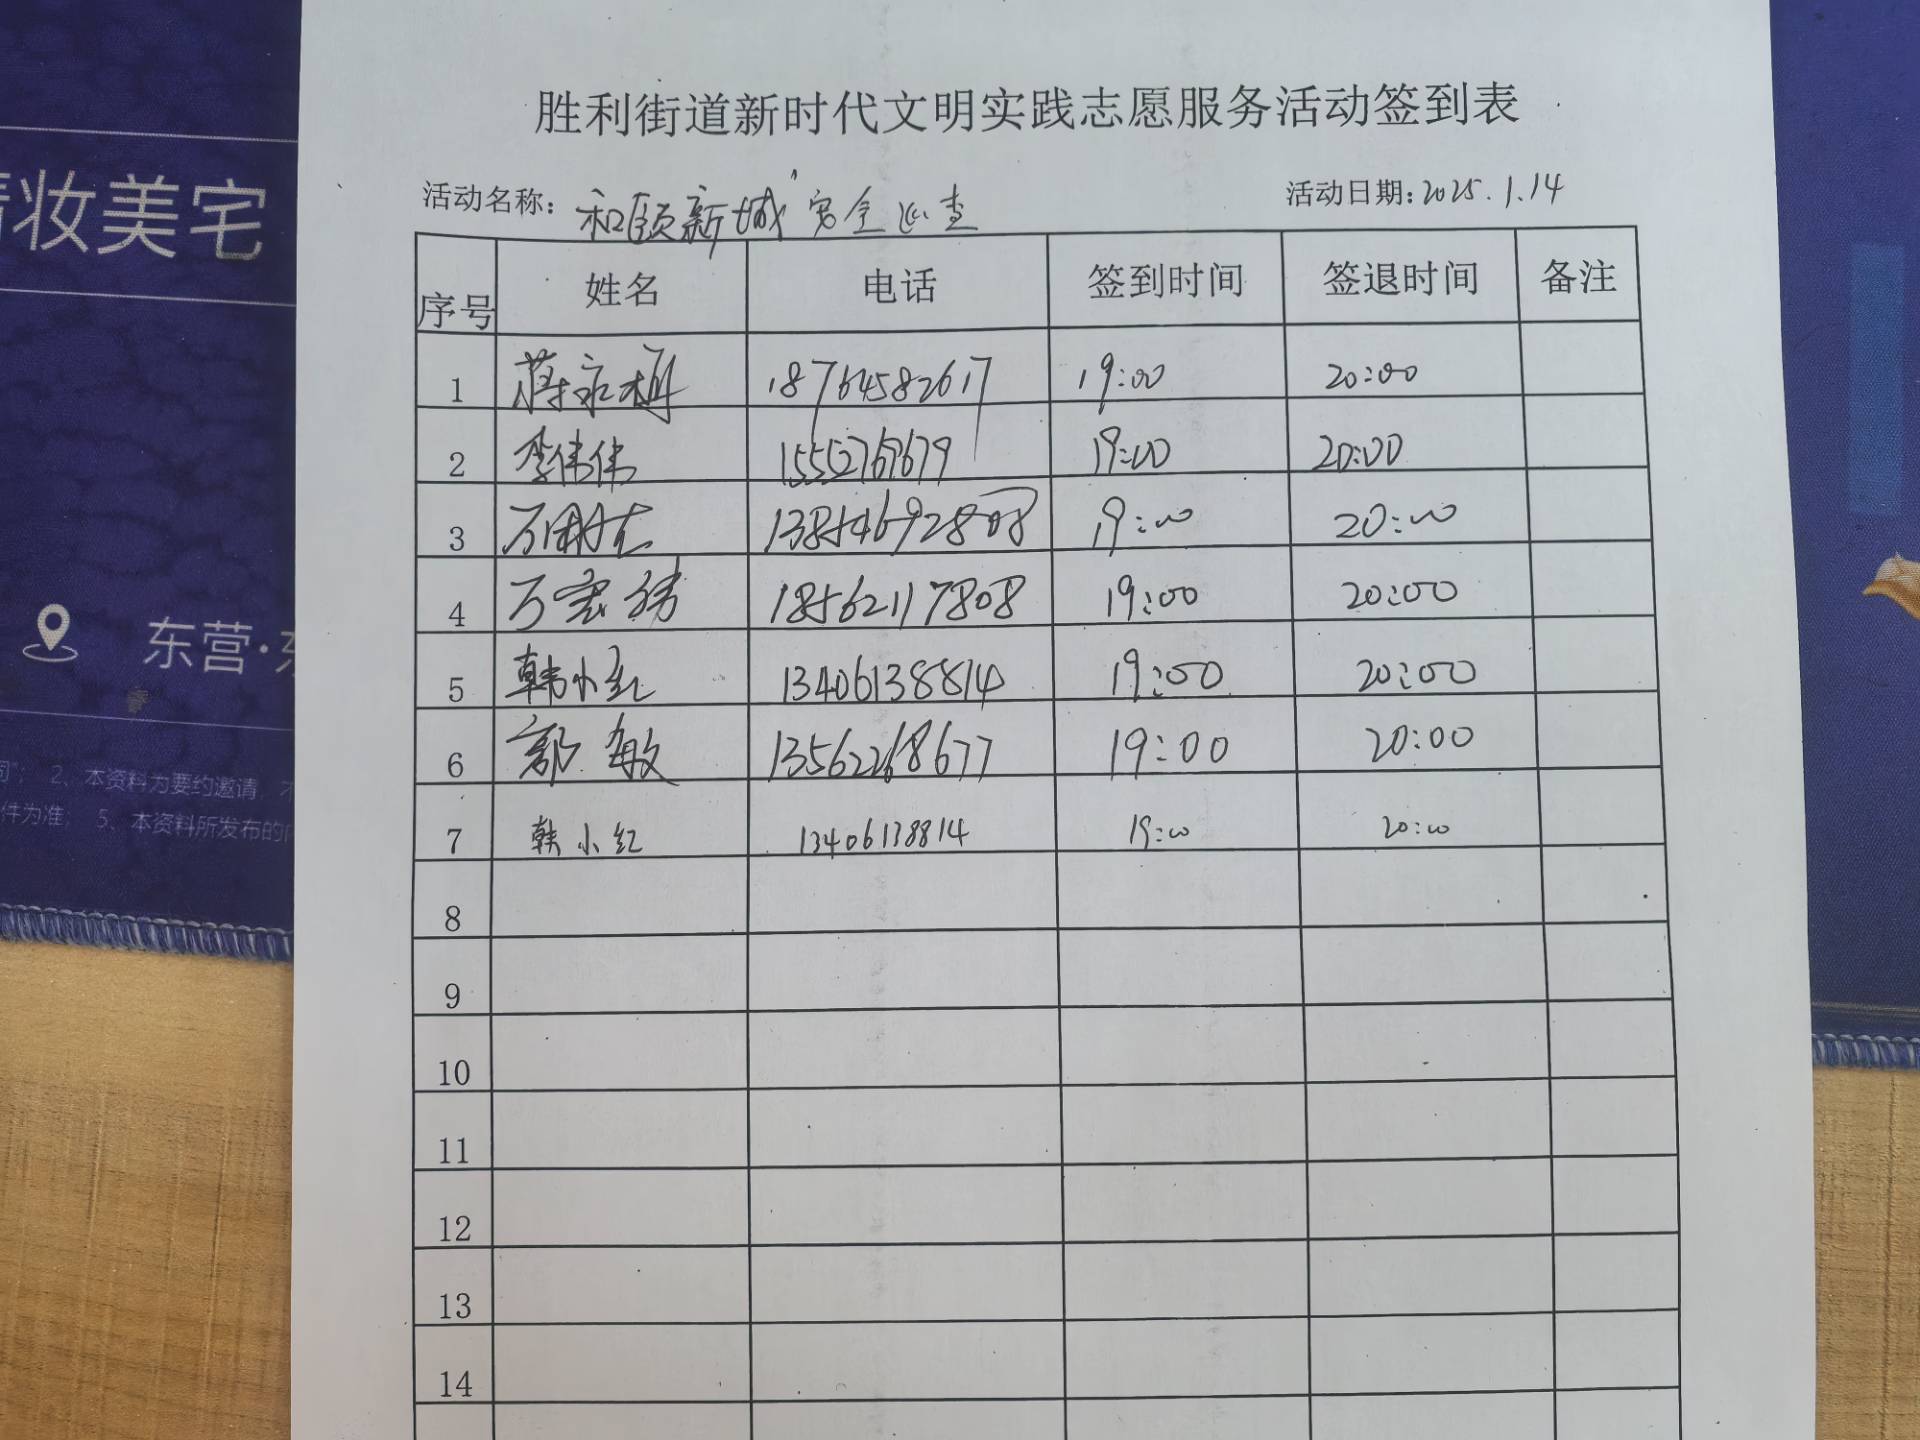 胜利街道新时代文明实践志愿服务活动签到表
活动名称：和颐新城"安全巡查 活动日期：2025.1.14
序号 姓名 电话 签到时间 签退时间 备注
1 蒋永梅 18764582617 19:00 20:00
2 李伟伟 15552769679 19:00 20:00
3 13854692808 19:00 20:00
4 万宏伟 18562117808 19:00 20:00
5 韩小红 13406138814 19:00 20:00
6 郭敏 13562268677 19:00 20:00
7 韩小红 13406138814 19:00 20:00
8
9
10
11
12
13
14
妆美宅
东营·东
2、本资料为要约邀请，不
件为准； 5、本资料所发布的